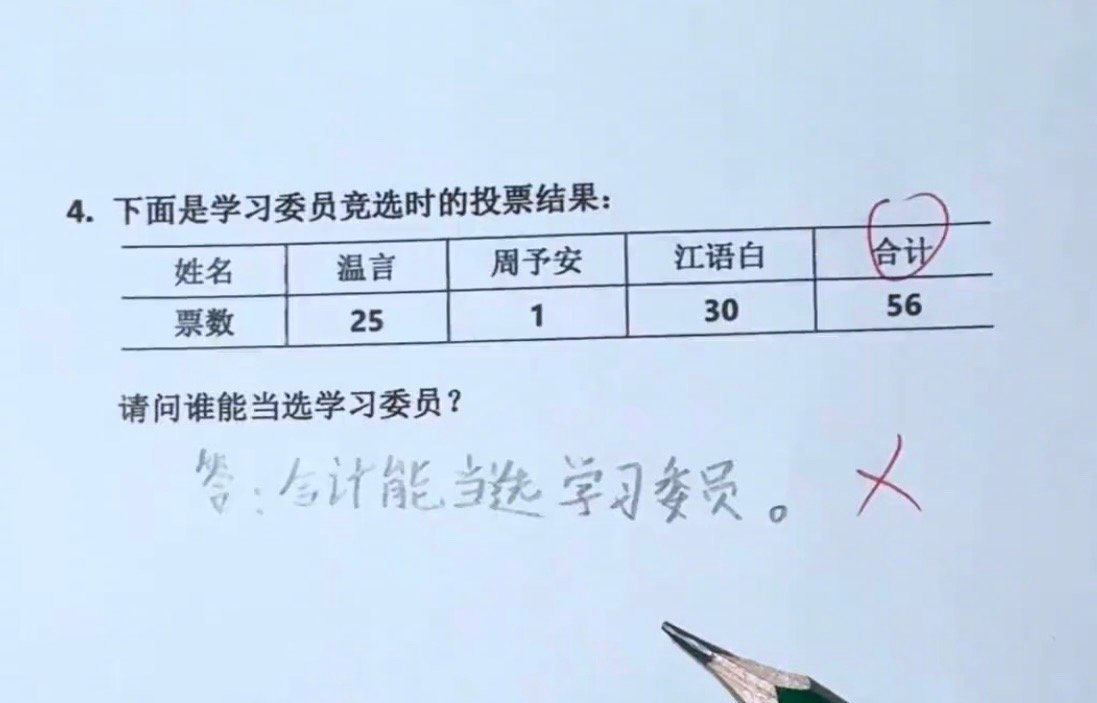 4. 下面是学习委员竞选时的投票结果：
姓名 温言 周予安 江语白 合计
票数 25 1 30 56
请问谁能当选学习委员？
答：合计能当选学习委员。